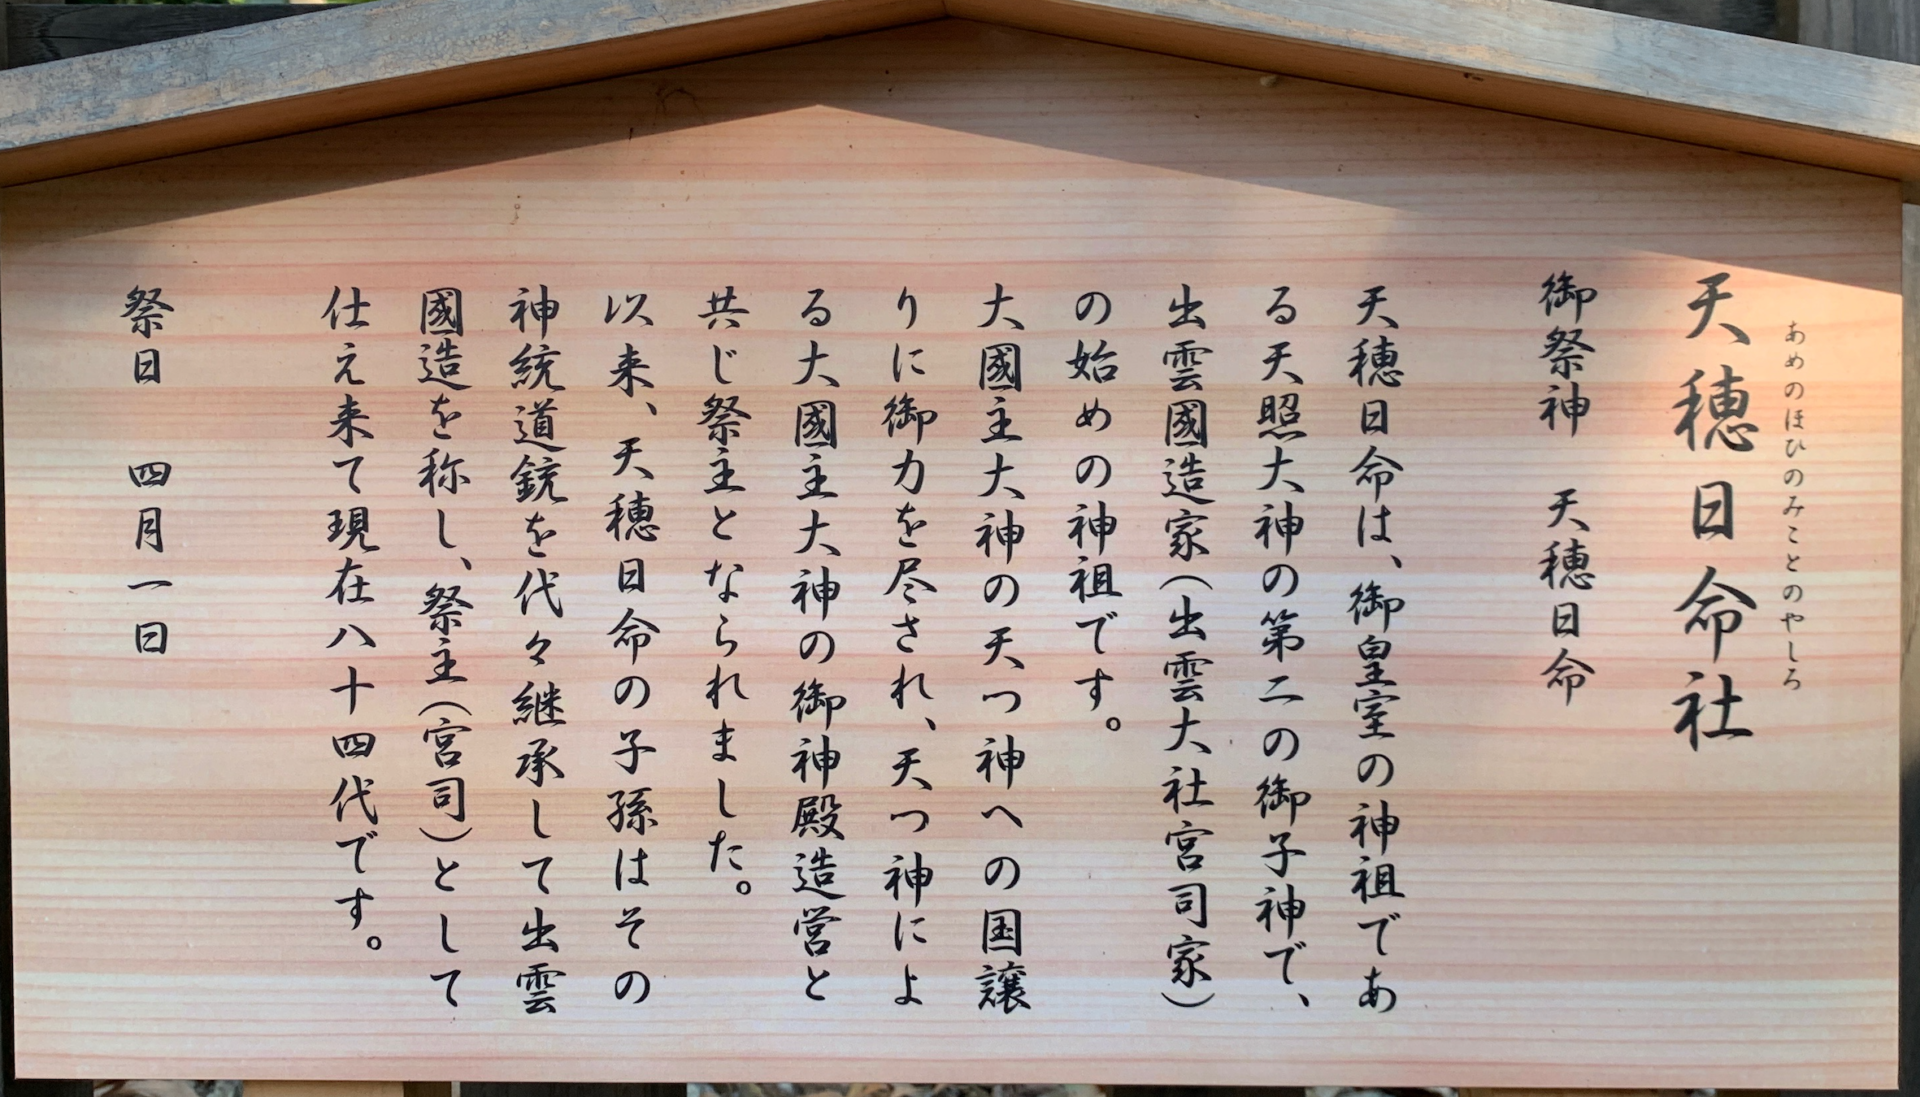 天穂日命社
あめのほひのみことのやしろ
御祭神　天穂日命
天穂日命は、御皇室の神祖であ
る天照大神の第二の御子神で、
出雲國造家（出雲大社宮司家）
の始めの神祖です。
大國主大神の天つ神への国譲
りに御力を尽され、天つ神によ
る大國主大神の御神殿造営と
共じ祭主となられました。
以来、天穂日命の子孫はその
神統道銃を代々継承して出雲
國造を称し、祭主（宮司）として
仕え来て現在八十四代です。
祭日　四月一日